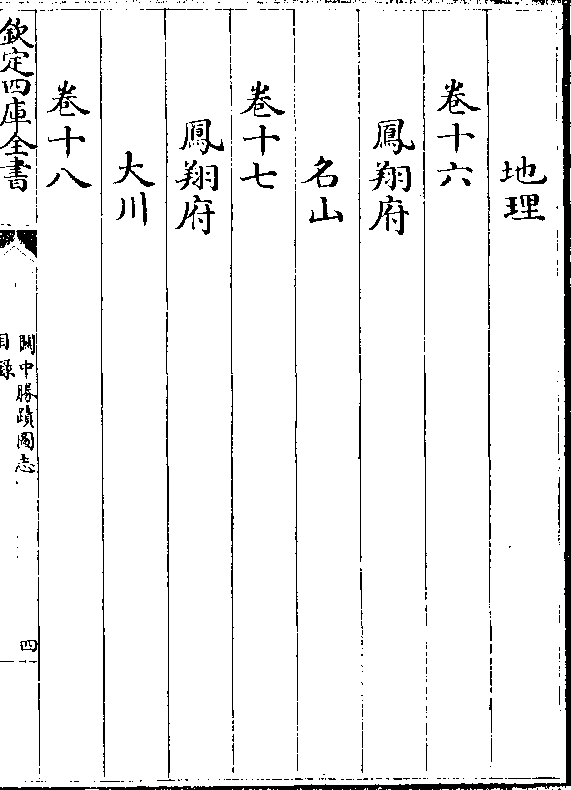 地理
卷十六
鳳翔府
名山
卷十七
鳳翔府
大川
卷十八
欽定四庫全書
關中勝蹟圖志
目錄
四